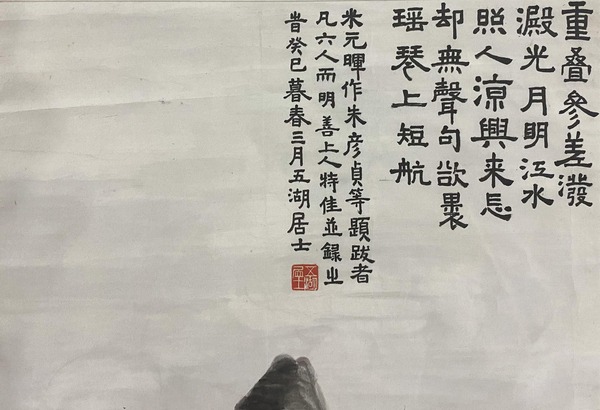 重叠參差潑
澱光月明江水
照人凉興来忘
却無聲句欲裹
瑶琴上短航
米元暉作朱彦貞等題跋者
凡六人而明善上人特佳並錄㞢
旹癸巳暮春三月五湖居士
五湖居士